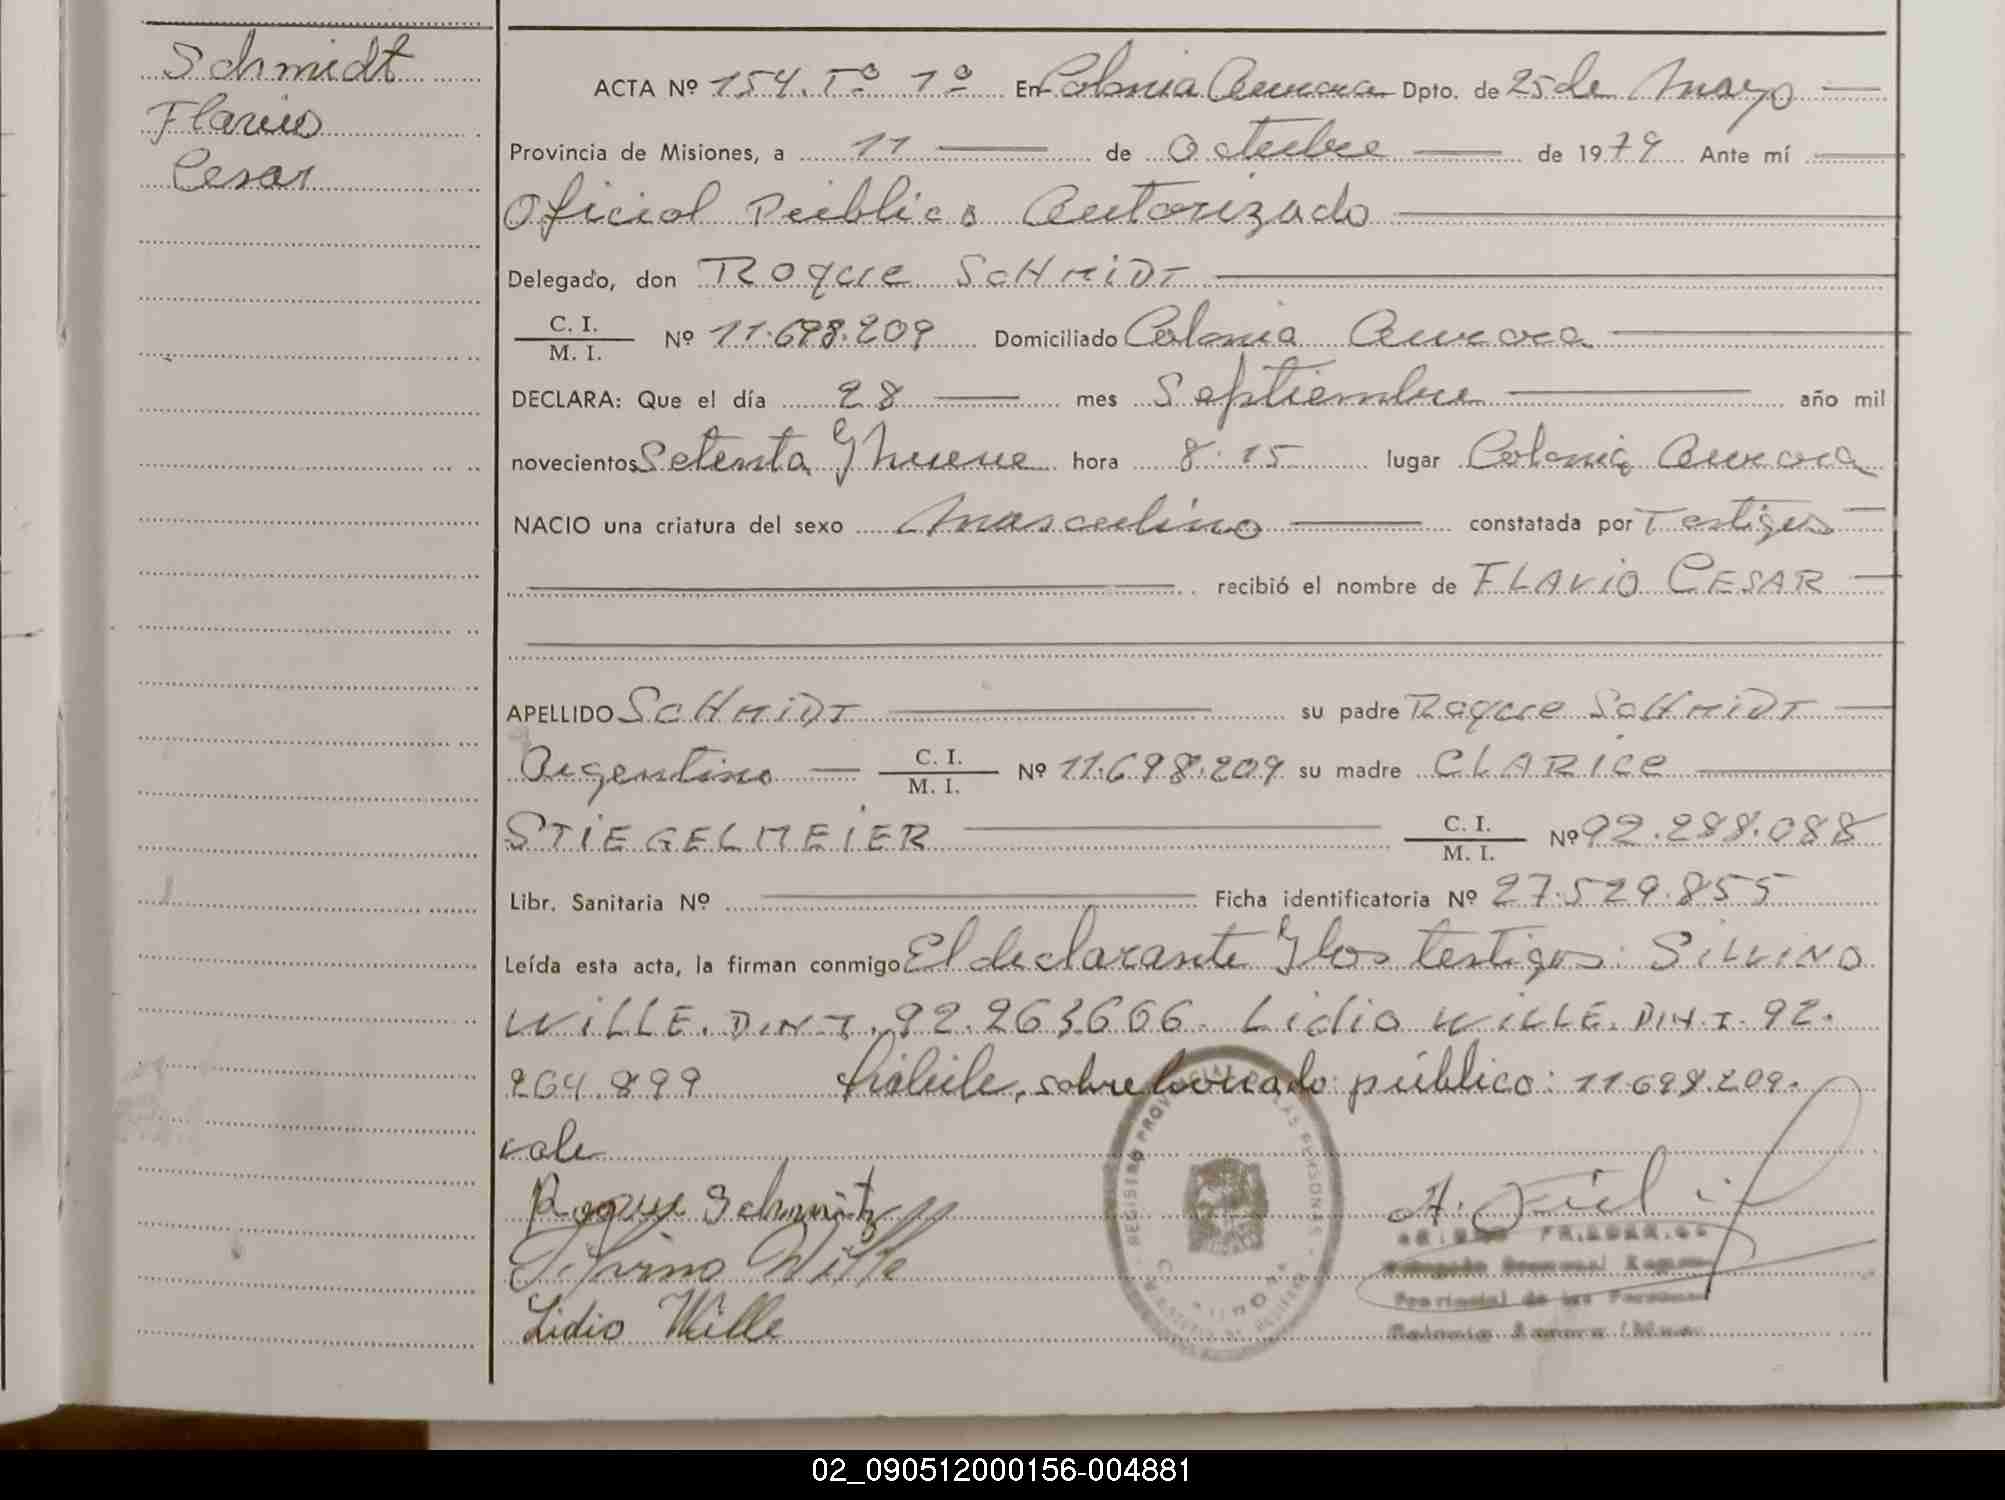 Schmidt
Flavio
Cesar
ACTA Nº 154. Tº 1º En Colonia Aurora Dpto. de 25 de Mayo
Provincia de Misiones, a 11 de Octubre de 1979 Ante mí
Oficial Público Autorizado
Delegado, don Roque SCHMIDT
C. I.
M. I. Nº 11.698.209 Domiciliado Colonia Aurora
DECLARA: Que el día 28 mes Septiembre año mil
novecientos Setenta y nueve hora 8.15 lugar Colonia Aurora
NACIO una criatura del sexo Masculino constatada por Testigos
recibió el nombre de FLAVIO CESAR
APELLIDO SCHMIDT su padre Roque SCHMIDT
Argentino C. I.
M. I. Nº 11.698.209 su madre CLARICE
STIEGELMEIER C. I.
M. I. Nº 92.288.088
Libr. Sanitaria Nº Ficha identificatoria Nº 27.529.855
Leída esta acta, la firman conmigo El declarante y los testigos: SILVINO
WILLE. D.N.I. 92.263666. Lidio WILLE. D.N.I. 92.
264.899 sobre borrado público: 11.698.209.
vale
Roque Schmitz
Silvino Wille
Lidio Wille
REGISTRO PROVINCIAL DE LAS PERSONAS
Provincial de las Personas
Colonia Aurora
02_090512000156-004881